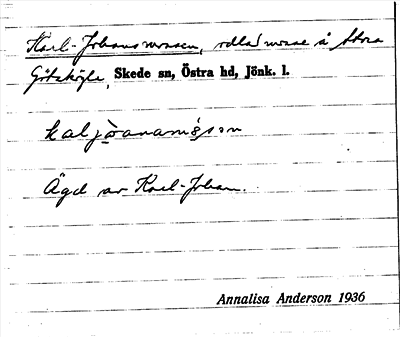 Karl-Johansmossen, odlad mosse å Stora
Götaköp, Skede sn, Östra hd, Jönk. l.
kaljòanamǫsən
Ägd av Karl-Johan.
Annalisa Anderson 1936